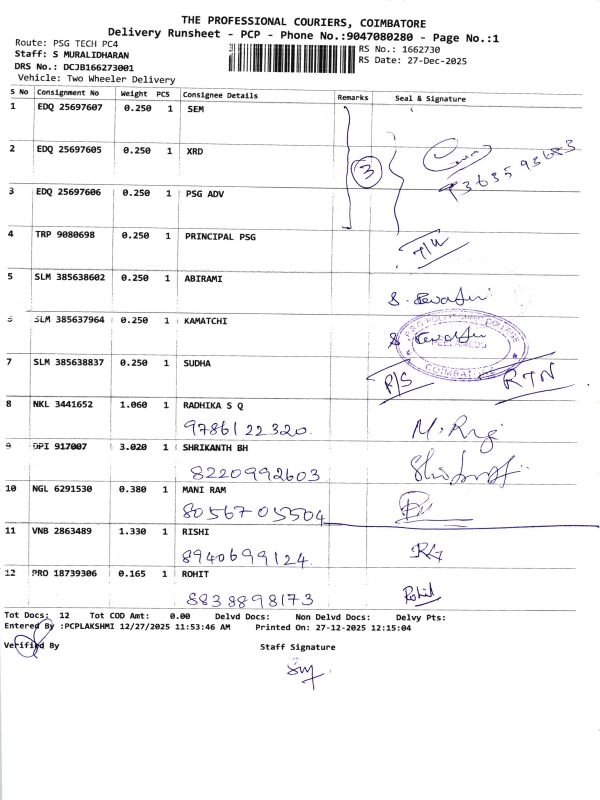 THE PROFESSIONAL COURIERS, COIMBATORE
Delivery Runsheet - PCP - Phone No.:9047080280 - Page No.:1
Route: PSG TECH PC4
Staff: S MURALIDHARAN
DRS No.: DCJB166273001
Vehicle: Two Wheeler Delivery
RS No.: 1662730
RS Date: 27-Dec-2025
S No Consignment No Weight PCS Consignee Details Remarks Seal & Signature
1 EDQ 25697607 0.250 1 SEM
2 EDQ 25697605 0.250 1 XRD
3
3 EDQ 25697606 0.250 1 PSG ADV
4 TRP 9080698 0.250 1 PRINCIPAL PSG
5 SLM 385638602 0.250 1 ABIRAMI
6 SLM 385637964 0.250 1 KAMATCHI
COIMBATORE
7 SLM 385638837 0.250 1 SUDHA P/S RTN
8 NKL 3441652 1.060 1 RADHIKA S Q
9786122320
9 OPI 917007 3.020 1 SHRIKANTH BH
8220992603
10 NGL 6291530 0.380 1 MANI RAM
8056705504
11 VNB 2863489 1.330 1 RISHI
8940699124
12 PRO 18739306 0.165 1 ROHIT
8838898173 Rohit
Tot Docs: 12 Tot COD Amt: 0.00 Delvd Docs: Non Delvd Docs: Delvy Pts:
Entered By :PCPLAKSHMI 12/27/2025 11:53:46 AM Printed On: 27-12-2025 12:15:04
Verified By Staff Signature